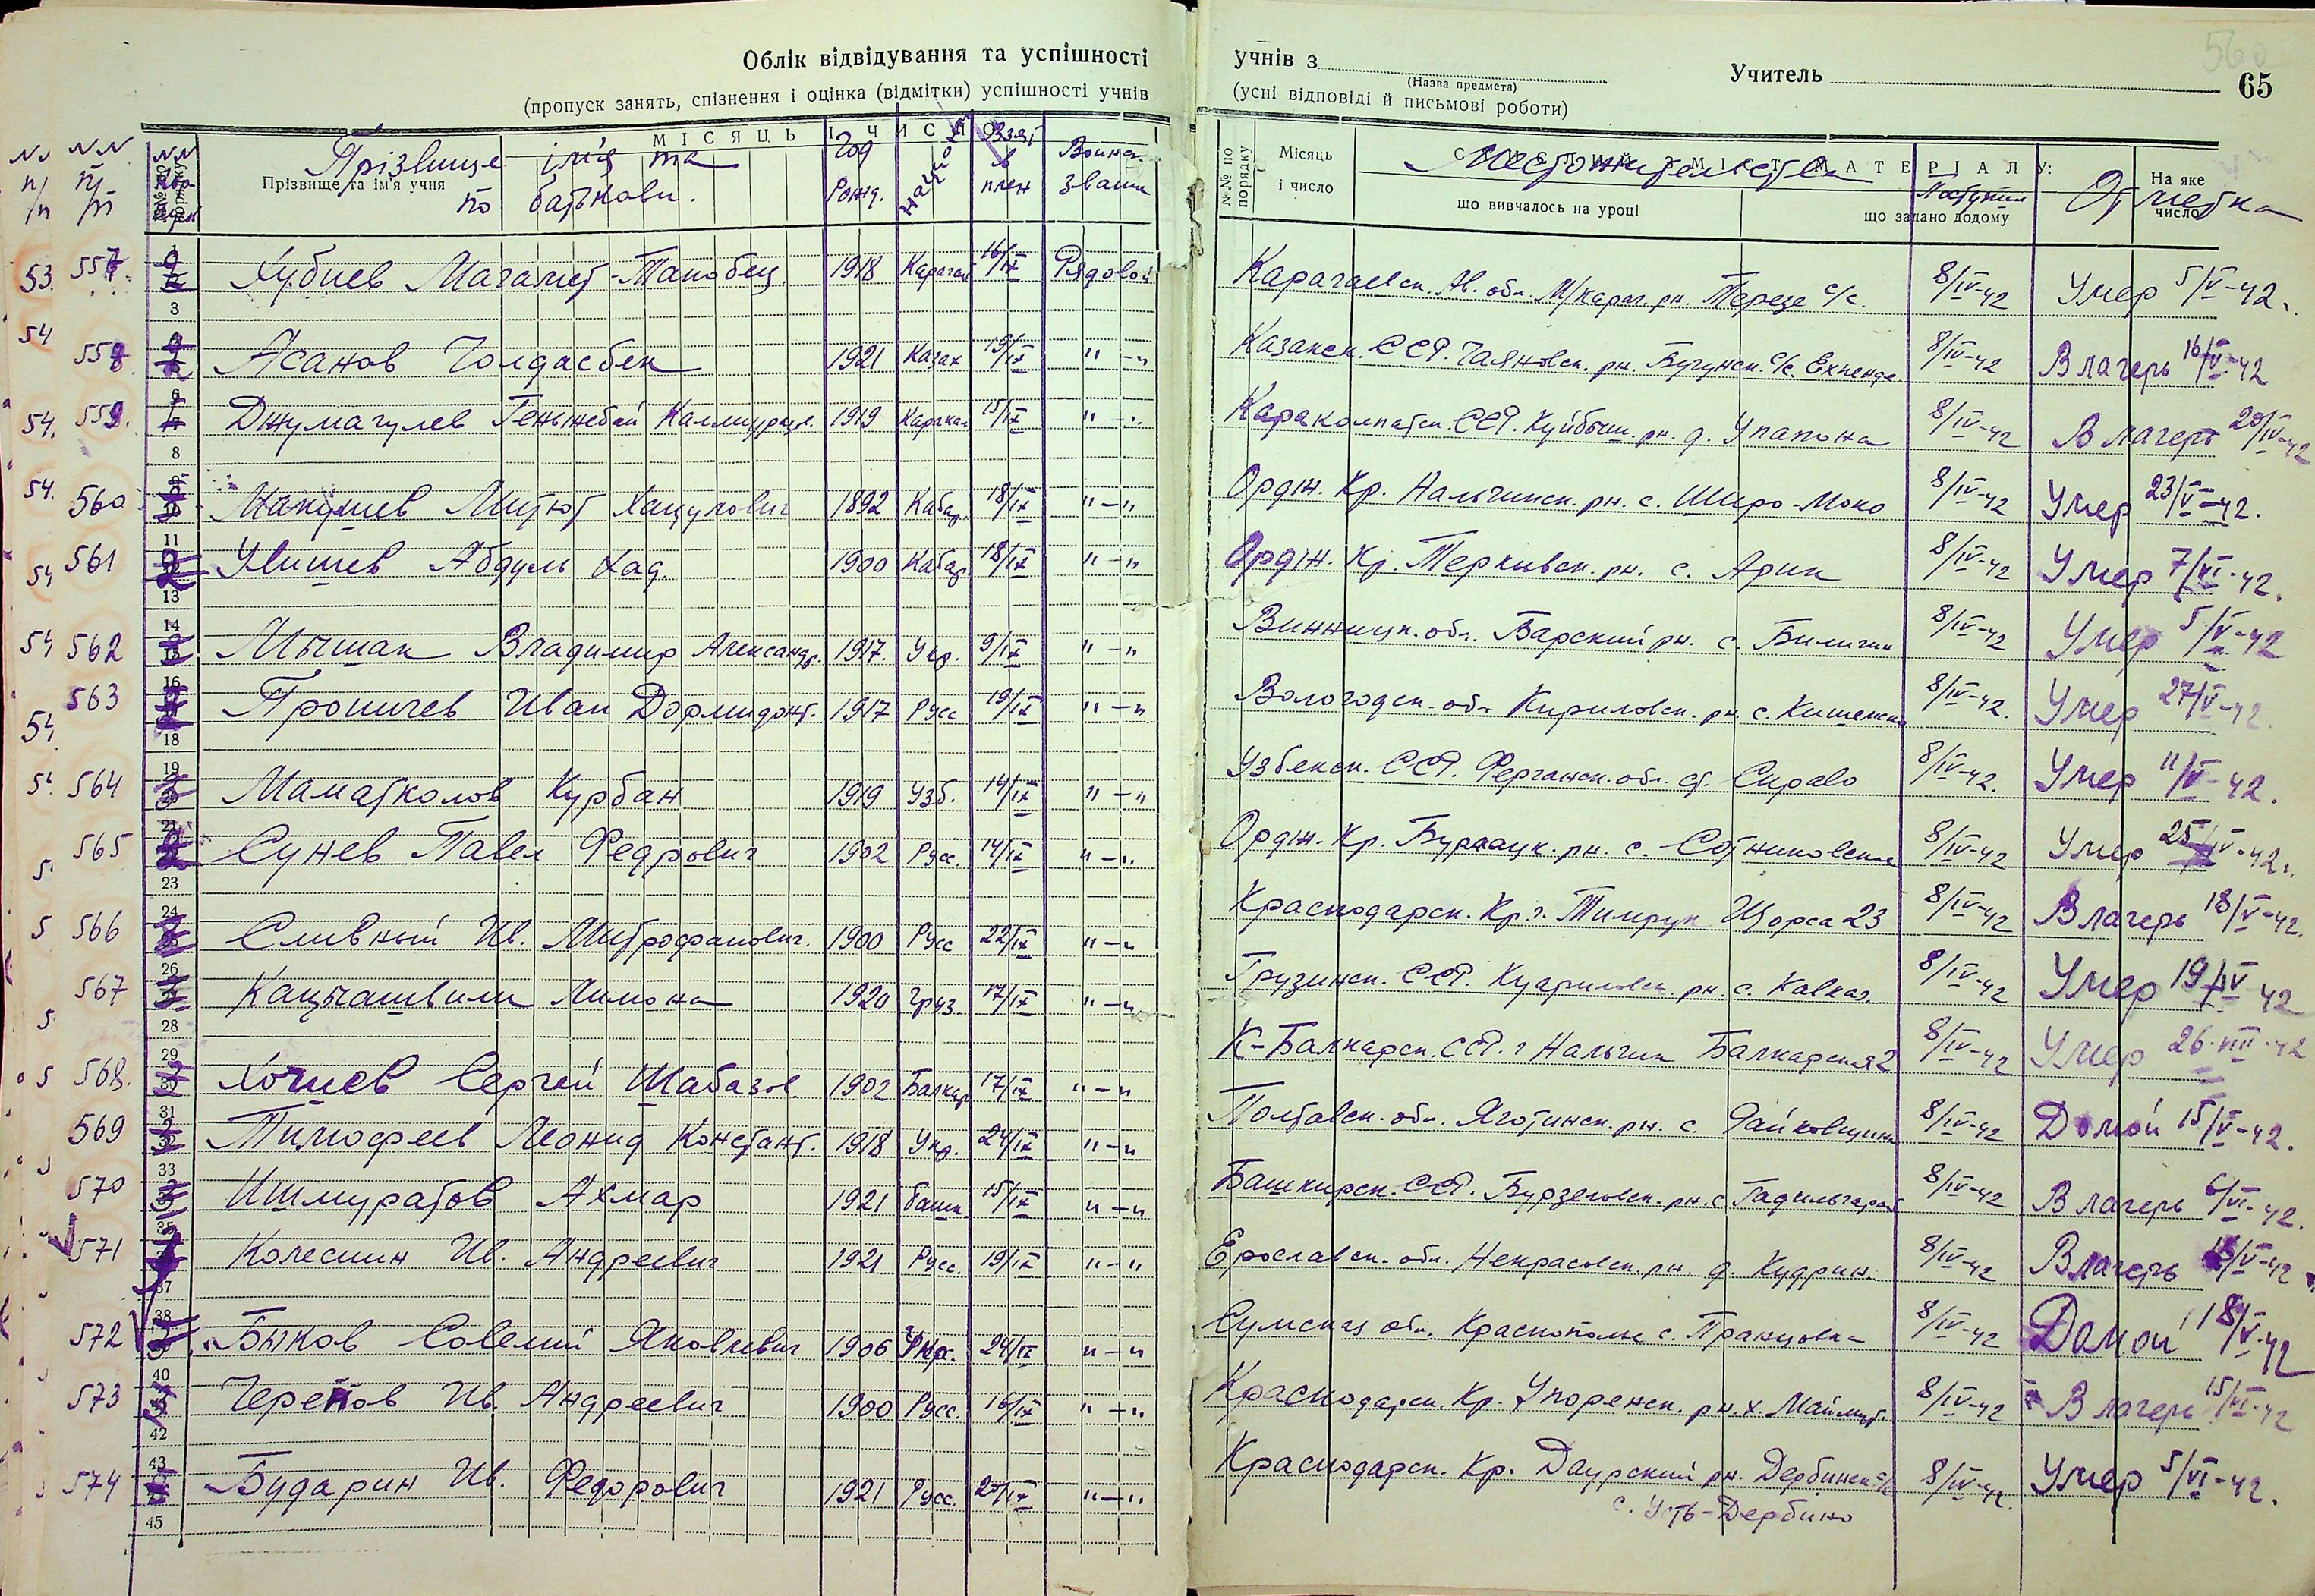 Облік відвідування та успішності
(пропуск занять, спізнення і оцінка (відмітки) успішності учнів
учнів з
(Назва предмета)
Учитель
65
(усні відповіді й письмові роботи)
МІСЯЦЬ І ЧИСЛО
NN п/п
Прізвище та ім'я учня
Прізвище ім'я та по батькови.
Год Рожд.
Взят в плен
Воинск. звание
№№ по порядку
Місяць і число
що вивчалось на уроці
Местожительство
Поступил
що задано додому
На яке число
Отметка
557 Хубиев Магамет-Танобец. 1918 Карачай 16/IX Рядовой Карачаевск. Ав. обл. М/карач. рн. Терезе с/с. 8/IV-42 Умер 5/V-42.
558 Асанов Чолдасбек 1921 Казах 19/IX "-" Казахск. ССР. Чаяновск. рн. Бугунск. с/с. 8/IV-42 В лагерь 16/V-42
559. Джумагулев 1919 Каракал 15/IX "-" Каракалпатск. ССР. Куйбыш. рн. д. 8/IV-42 В лагерь 20/IV-42
560 1892 Кабар. 18/IX "-" Ордж. Кр. Нальчинск. рн. с. Широ-Моко 8/IV-42 Умер 23/V-42.
561 Увишев Абдуль Хад. 1900 Кабар. 18/IX "-" Ордж. Кр. рн. с. Арик 8/IV-42 Умер 7/VI-42.
562 Мычак Владимир Александр. 1917. Укр. 9/IX "-" Винницк. обл. Барский рн. с. Биличин 8/IV-42 Умер 5/V-42
563 Проничев Иван Дормидонт. 1917 Русс 19/IX "-" Вологодск. обл. Кириловск. рн. с. 8/IV-42. Умер 27/V-42.
564 Маматколов Курбан 1919 Узб. 14/IX "-" Узбекск. ССР. Ферганск. обл. ст. Сираво 8/IV-42. Умер 11/V-42.
565 Сунев Павел Федрович 1902 Русс. 14/IX "-" Ордж. Кр. рн. с. Сотниковское 8/IV-42 Умер 25/IV-42г.
566 Сливный Ив. Митрофанович. 1900 Русс 22/IX "-" Краснодарск. Кр. г. Тимрук Щорса 23 8/IV-42 В лагерь 18/V-42.
567 Кацыашвили Лимона 1920 Груз. 17/IX "-" Грузинск. ССР. рн. с. Кавказ 8/IV-42 Умер 19/IV-42
568. Хочиев Сергей Шабазов. 1902 Балкар 17/IX "-" К-Балкарск. ССР. г Нальчик Балкарская 2 8/IV-42 Умер 26-VIII-42
569 Тимофеев Леонид Констант. 1918 Укр. 24/IX "-" Полтавск. обл. Яготинск. рн. с. Райковщина 8/IV-42 Домой 15/V-42.
570 Ишмуратов Ахмар 1921 башк. 15/IX "-" Башкирск. ССР. Бурзеновск. рн. с. 8/IV-42 В лагерь 6/VI-42.
571 Колесшин Ив. Андреевич 1921 Русс. 19/IX "-" Ерославск. обл. Некрасовск. рн. д. Кудрин. 8/IV-42 В лагерь /V-42
572 Быков Совелий Яковлевич 1906 Укр. 24/IX "-" Сумская обл. Краснополье с. 8/IV-42 Домой 18/V-42
573 Черепов Ив. Андреевич 1900 Русс. 16/IX "-" Краснодарск. Кр. Упоренск. рн. х. 8/IV-42 В лагерь 15/VI-42
574 Бударин Ив. Федорович 1921 Русс. 25/IX "-" Краснодарск. Кр. Даурский рн. Дербинск с/с 8/IV-42. Умер 5/VI-42.
с. Усть-Дербино